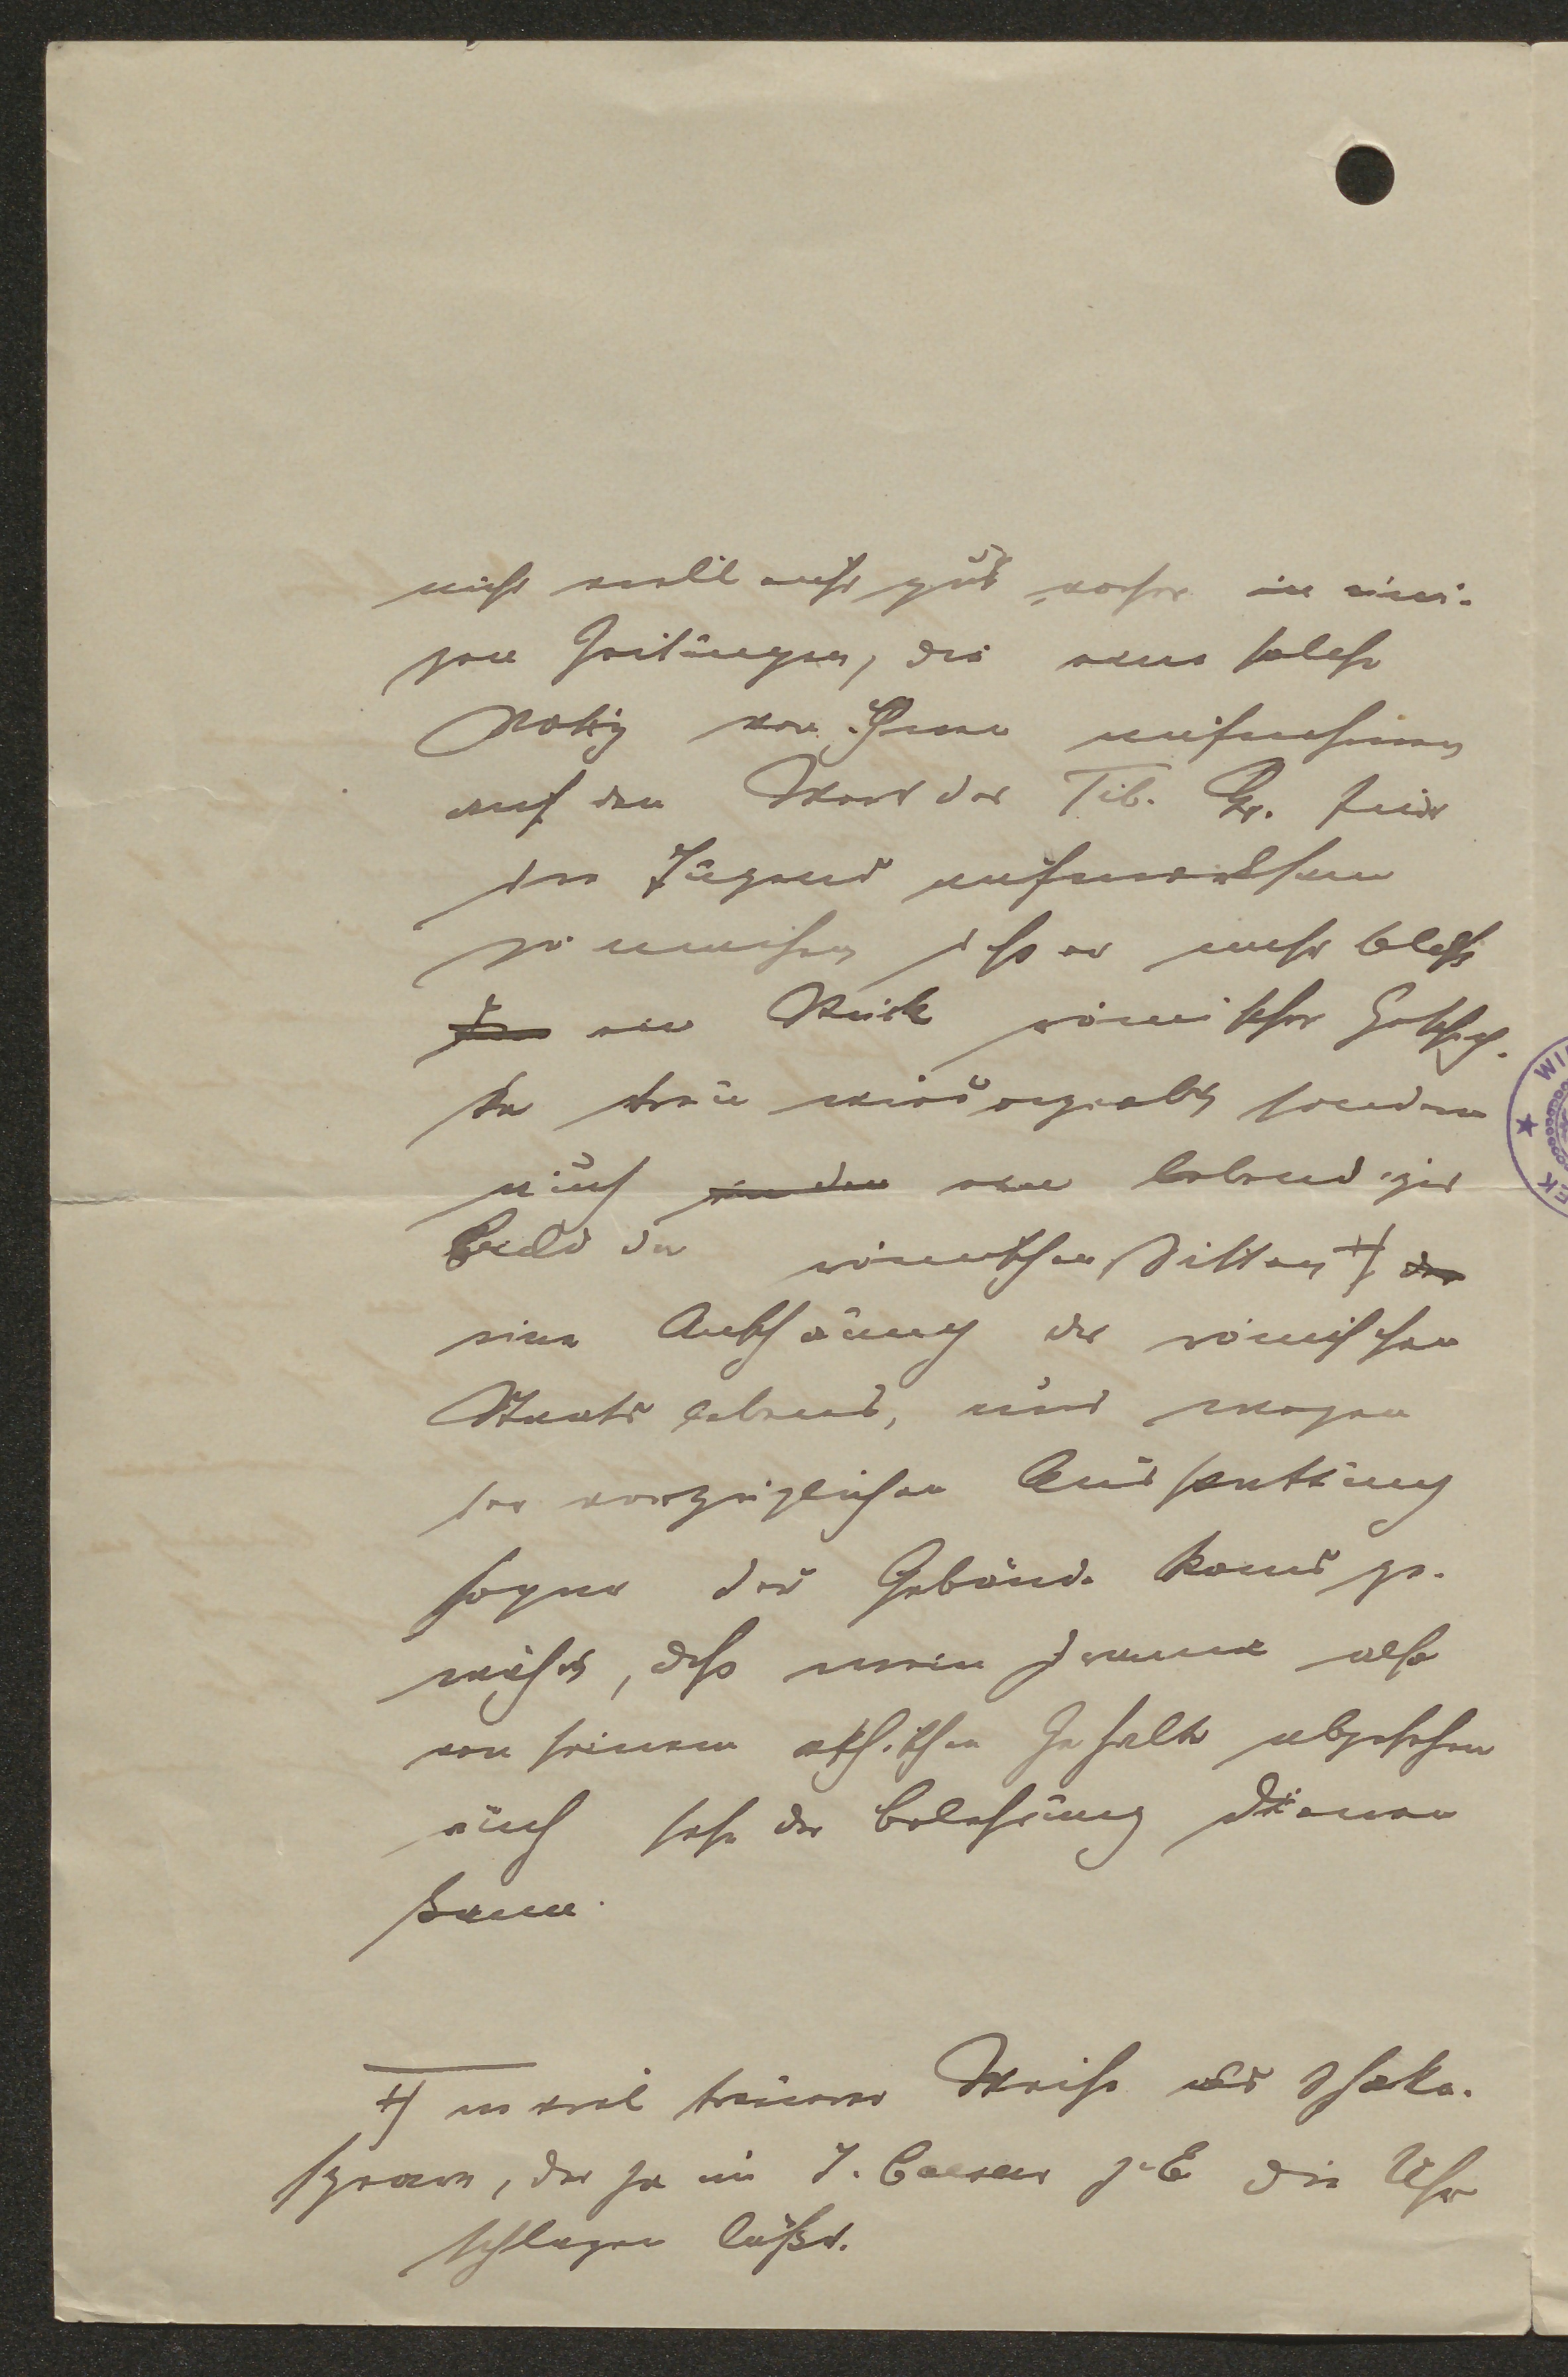 nicht vielleicht gut vorher in eini-
gen Zeitungen, die eine solche
Notiz von Ihnen aufnehmen
auf den Wert des Tib. Gr. für
die Jugend aufmerksam
zu machen daß er nicht bloß
ein Stück römischer Geschich-
te treu wiedergiebt sondern
auch ein lebendiges
Bild der römischen Sitten +)
eine Anschauung des römischen
Staatslebens, und wegen
der vorzüglichen Ausstattung
sogar der Gebäudekunst ge-
währt, daß mein Drama also
von seinem ethischen Gehalte abgesehen
auch sehr der Belehrung dienen
kann.
+) in viel treuerer Weise als Shake-
speare, der ja im J. Caesar z. B. die Uhr
schlagen läßt.
WI
K